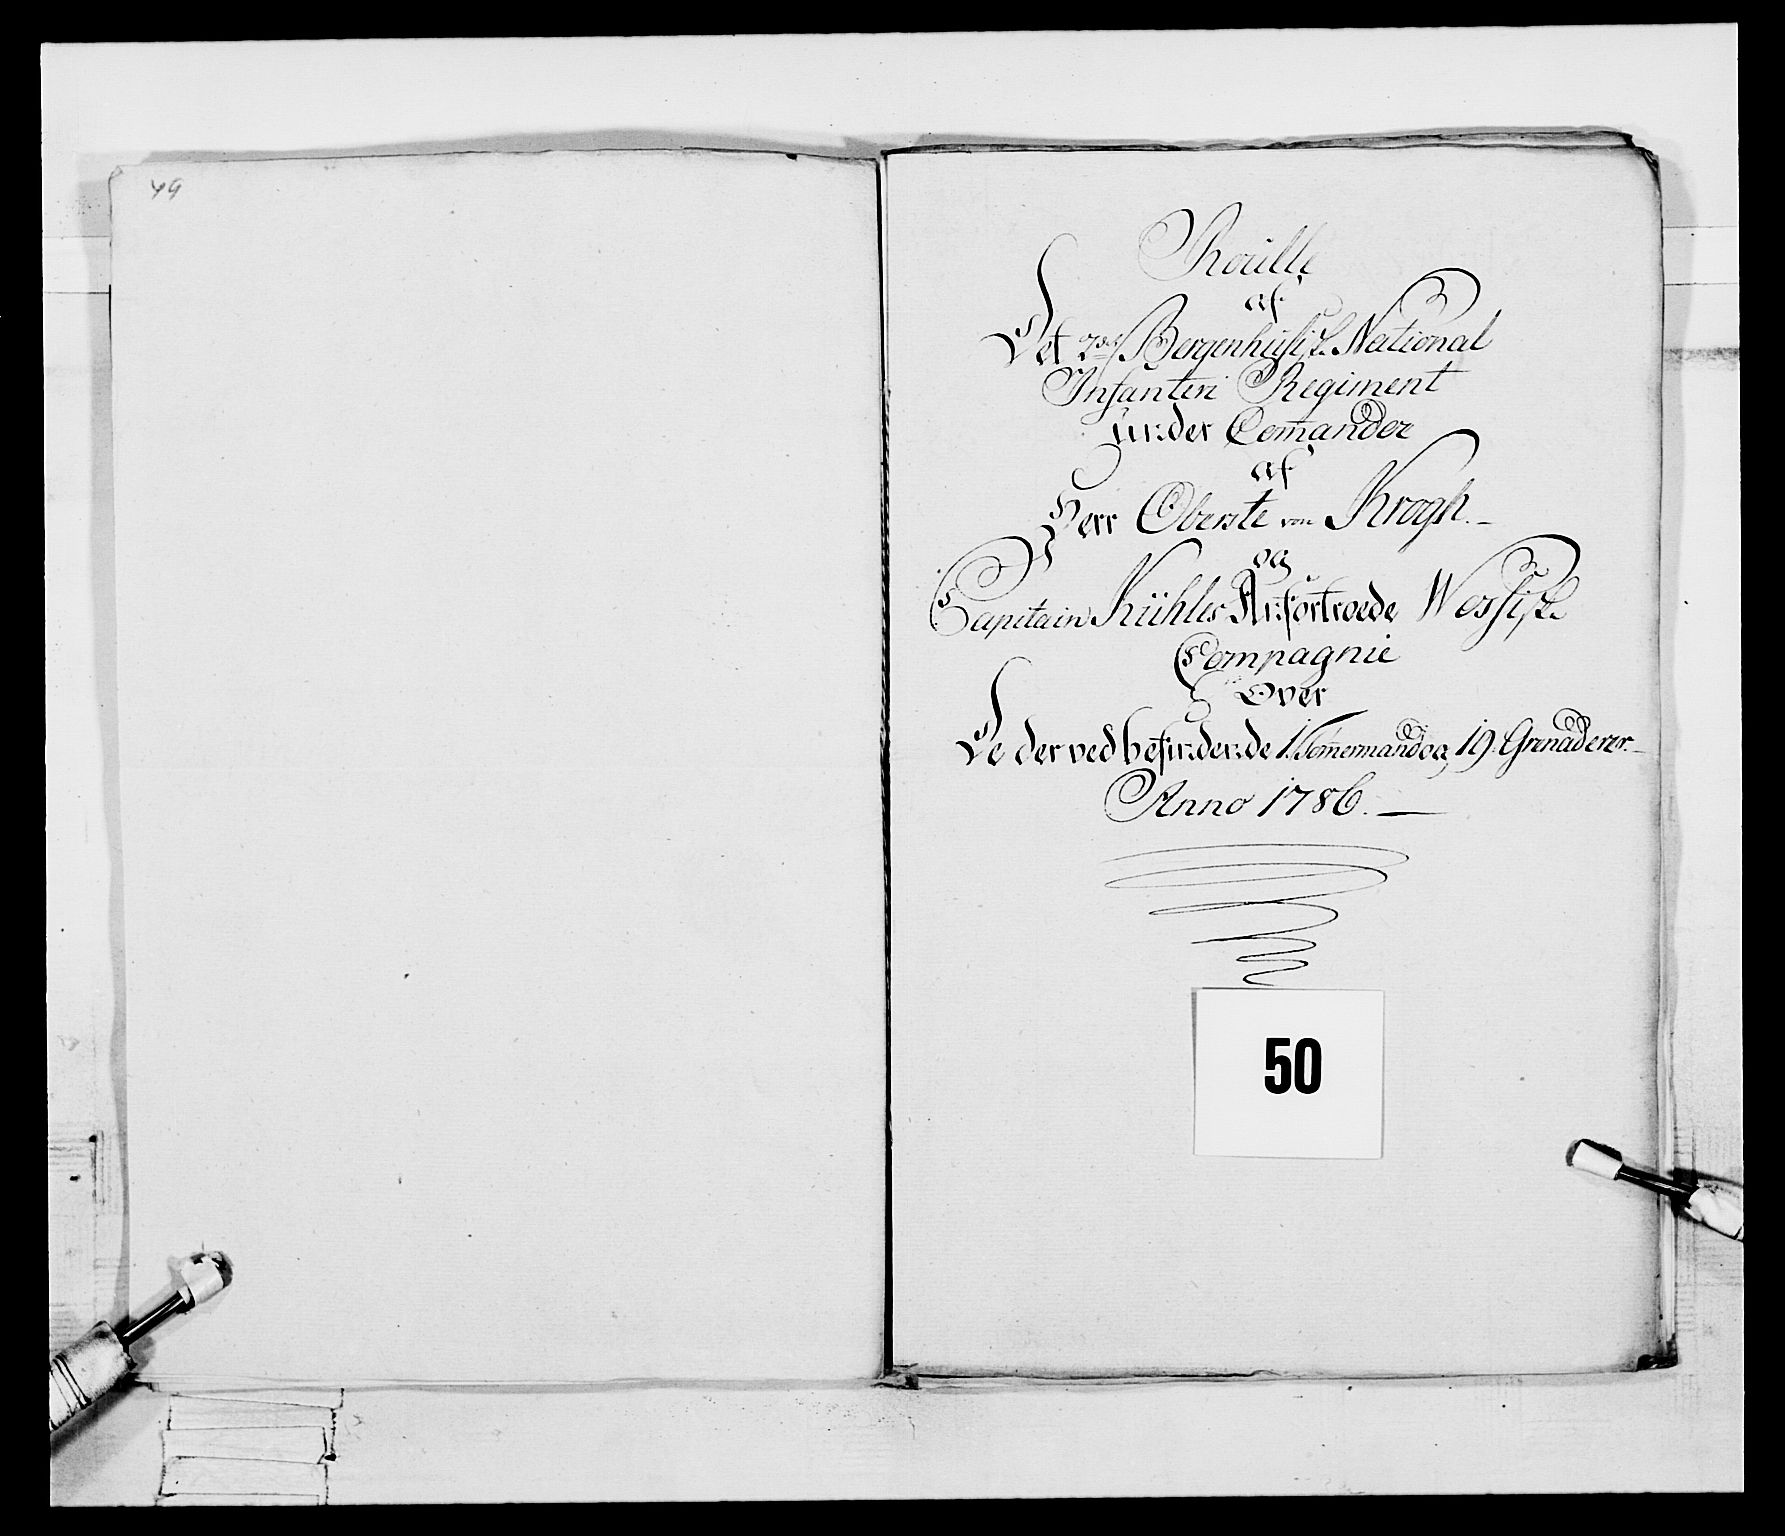 49
Roulle
af
Det 2de Bergenhusiske National
Infanteri Regiment
under Comando
af
Herr Oberste von Krogh.
og
Capitain Kühles Anfortroede Wossiske
Compagnie
Over
De derved befindende 1. Tømermand og 19. Grenaderer.
Anno 1786.
50